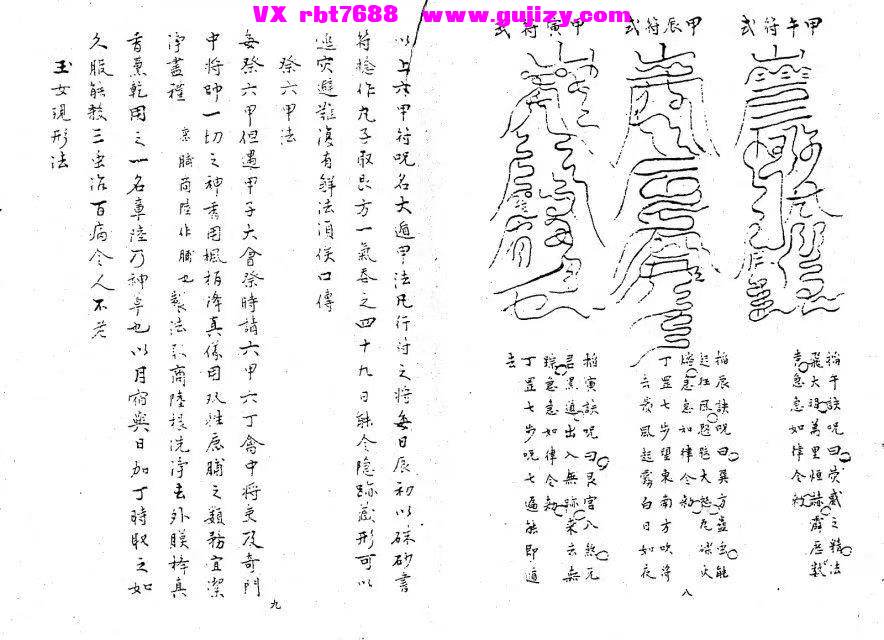 VX rbt7688 www.gujizy.com
甲午符式
掐午訣咒曰熒惑之精法
飛大詔萬里烜赫霹靂數
急急如律令敕
甲辰符式
掐辰訣咒曰巽方蟲能
起狂風
急急如律令敕
丁罡七步望東南方吹將
去最風起霧白日如夜
甲寅符式
掐寅訣咒曰艮宮八煞元
君黑道出入無跡來去無
踪急急如律令敕
丁罡七步咒七遍能即遁
去
八
以上六甲符咒名大遁甲法凡行持之將每日辰初以硃砂書
符捻作丸子取艮方一氣吞之四十九日能令隱跡藏形可以
逃災避難復有解法須俟口傳
祭六甲法
每祭六甲但遇甲子大會祭時請六甲六丁會中將吏及奇門
中將帥一切之神香用楓柏降真儀用雙牲鹿脯之類務宜潔
淨盡程 鹿脯商陸作脯也 製法取商陸根洗淨去外膜棒真
香熏乾用之一名章陸乃神草也以月宿與日加丁時取之如
久服能殺三虫治百病令人不老
玉女現形法
九